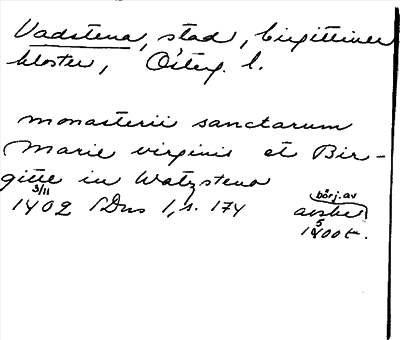 Vadstena, stad, birgittiner
kloster, Österg. l.
monasterii sanctarum
Marie virginis et Bir-
gitte in Watzstena
3/11
1402 SDns 1, s. 174
börj. av
avskr.
5
1400 t.